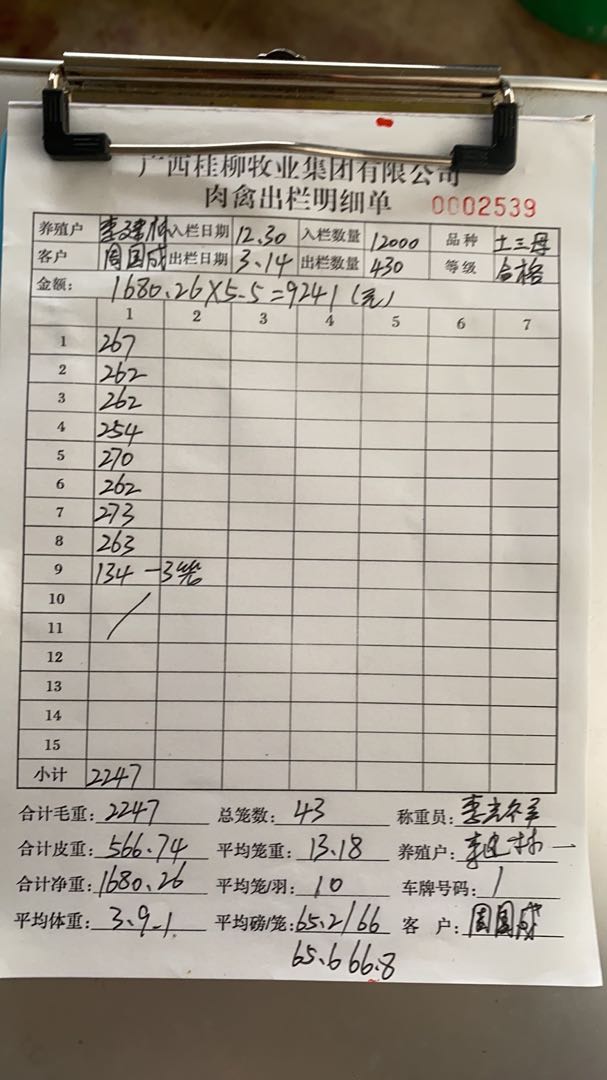 广西桂柳牧业集团有限公司
肉禽出栏明细单 0002539
养殖户 入栏日期 12.30 入栏数量 12000 品种 土三母
客户 周国成 出栏日期 3.14 出栏数量 430 等级 合格
金额: 1680.26×5.5=9241(元)
1 2 3 4 5 6 7
1 267
2 262
3 262
4 254
5 270
6 262
7 273
8 263
9 134 一3笼
10
11
12
13
14
15
小计 2247
合计毛重: 2247 总笼数: 43 称重员:
合计皮重: 566.74 平均笼重: 13.18 养殖户:
合计净重: 1680.26 平均笼/羽: 10 车牌号码: /
平均体重: 3.9-1 平均磅/笼: 65.2/66 客 户: 周国成
65.6 66.8